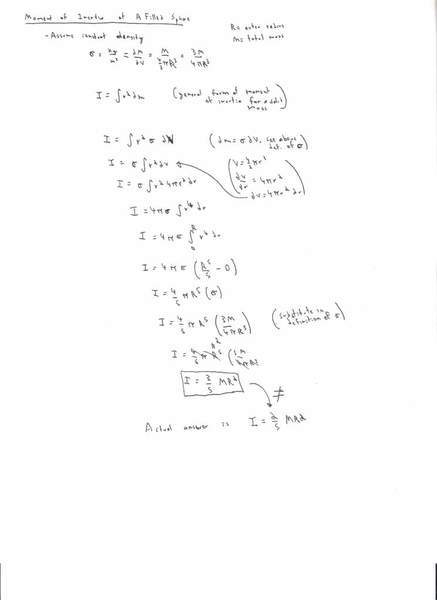 Moment of Inertia of A Filled Sphere
R = outer radius
M = total mass
- Assume constant density
σ = kg/m³ = dM/dV = M/(4/3 πR³) = 3M/4πR³
I = ∫r²dm (general form of moment of inertia for a solid mass)
I = ∫r² σ dV (dm = σ dV, see above def. of σ)
I = σ ∫r² dV (V = 4/3 πr³
I = σ ∫r² 4πr² dr dV/dr = 4πr²
dV = 4πr² dr)
I = 4πσ ∫r⁴ dr
I = 4πσ ∫₀ᴿ r⁴ dr
I = 4πσ (R⁵/5 - 0)
I = 4/5 πR⁵ (σ)
I = 4/5 πR⁵ (3M/4πR³) (substitute in definition of σ)
I = 4/5 πR⁵ R² (3M/4πR³)
I = 3/5 MR² ≠
Actual answer is I = 2/5 MR²